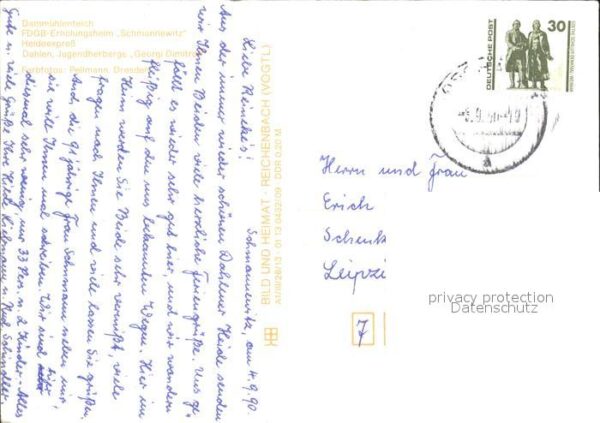 Dammühlenteich
FDGB-Erholungsheim „Schmannewitz"
Heideexpreß
Dahlen, Jugendherberge „Georgi Dimitroff"
Farbfotos: Pellmann, Dresden
Schmannewitz, am 4.9.90
Liebe Reinkes!
Aus der immer wieder schönen Dahlener Heide senden
wir Ihnen Beiden viele herzliche Feriengrüße. Uns ge-
fällt es wieder sehr gut hier, und wir wandern
fleißig auf den uns bekannten Wegen. Hier im
Heim werden Sie Beide sehr vermißt, viele
fragen nach Ihnen und viele lassen Sie grüßen.
Auch die 91 jährige Frau neben mir,
sie will Ihnen mal schreiben. Wir sind hier
diesmal sehr wenig, nur 33 Pers. m. 2 Kinder. Alles
Gute u. viele Grüße Ihre
BILD UND HEIMAT · REICHENBACH (VOGTL)
A1/III/26/13 · 01 13 0432/09 · DDR 0,20 M
DEUTSCHE POST
30
-5.9.90-19
a
Herrn und Frau
Erich
Schenk
Leipzi
7
privacy protection
Datenschutz